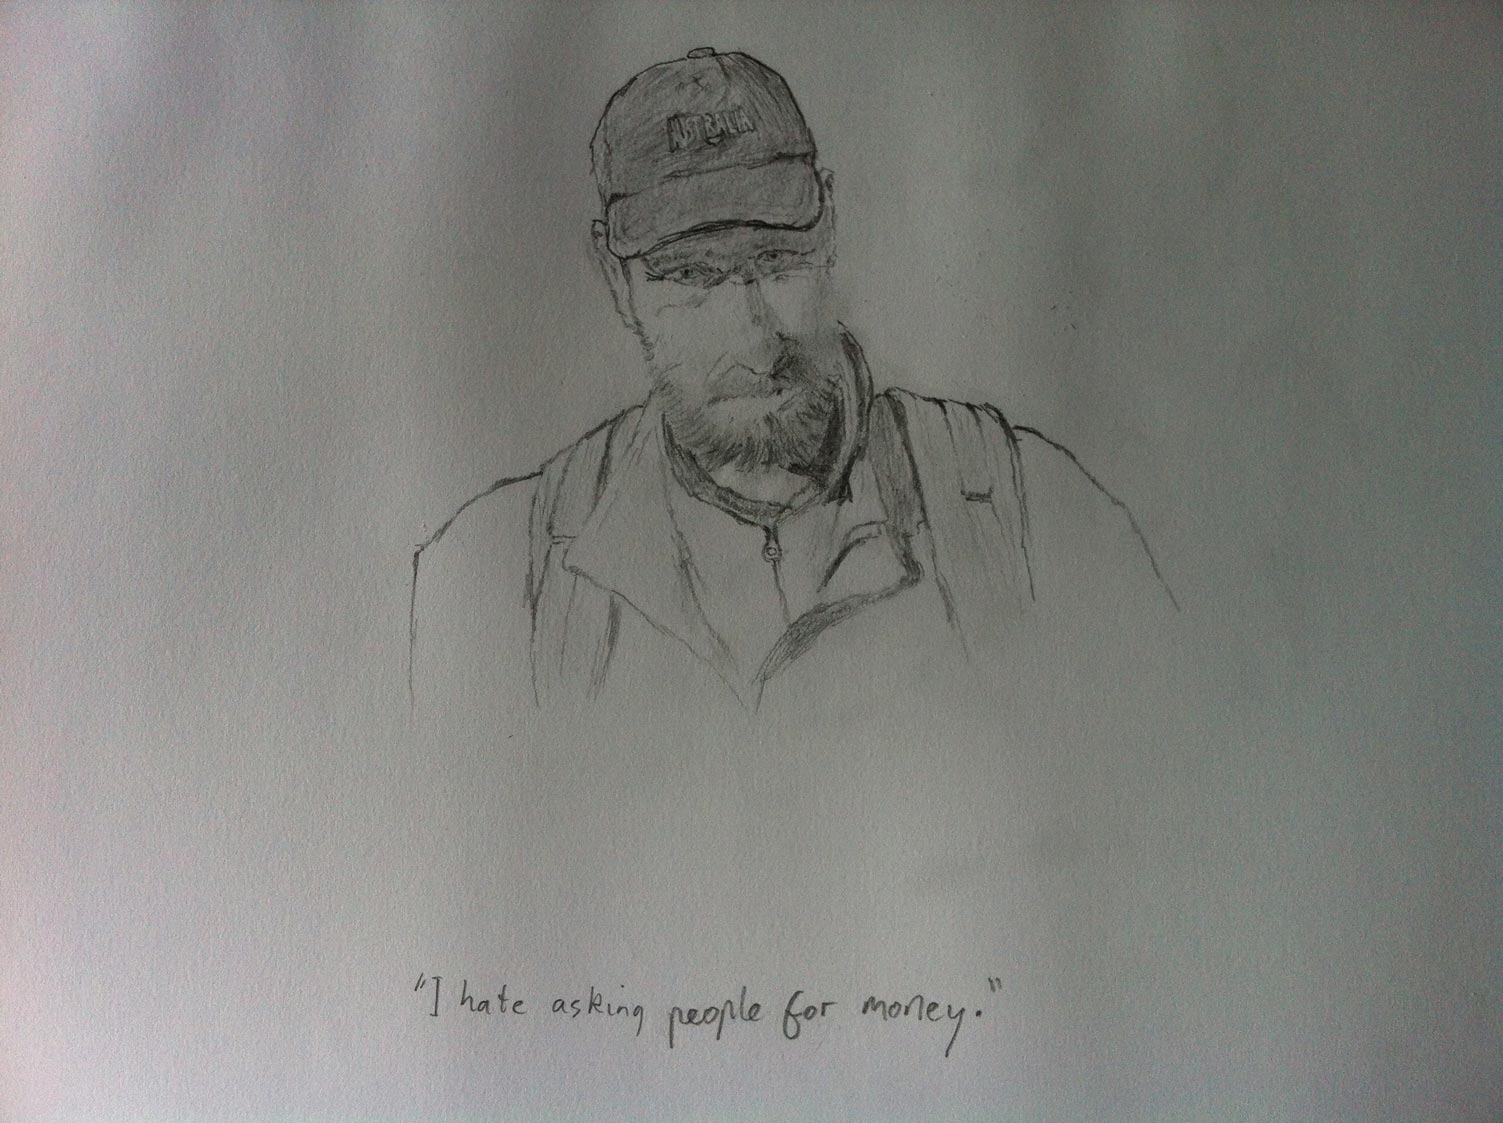 AUSTRALIA
"I hate asking people for money."